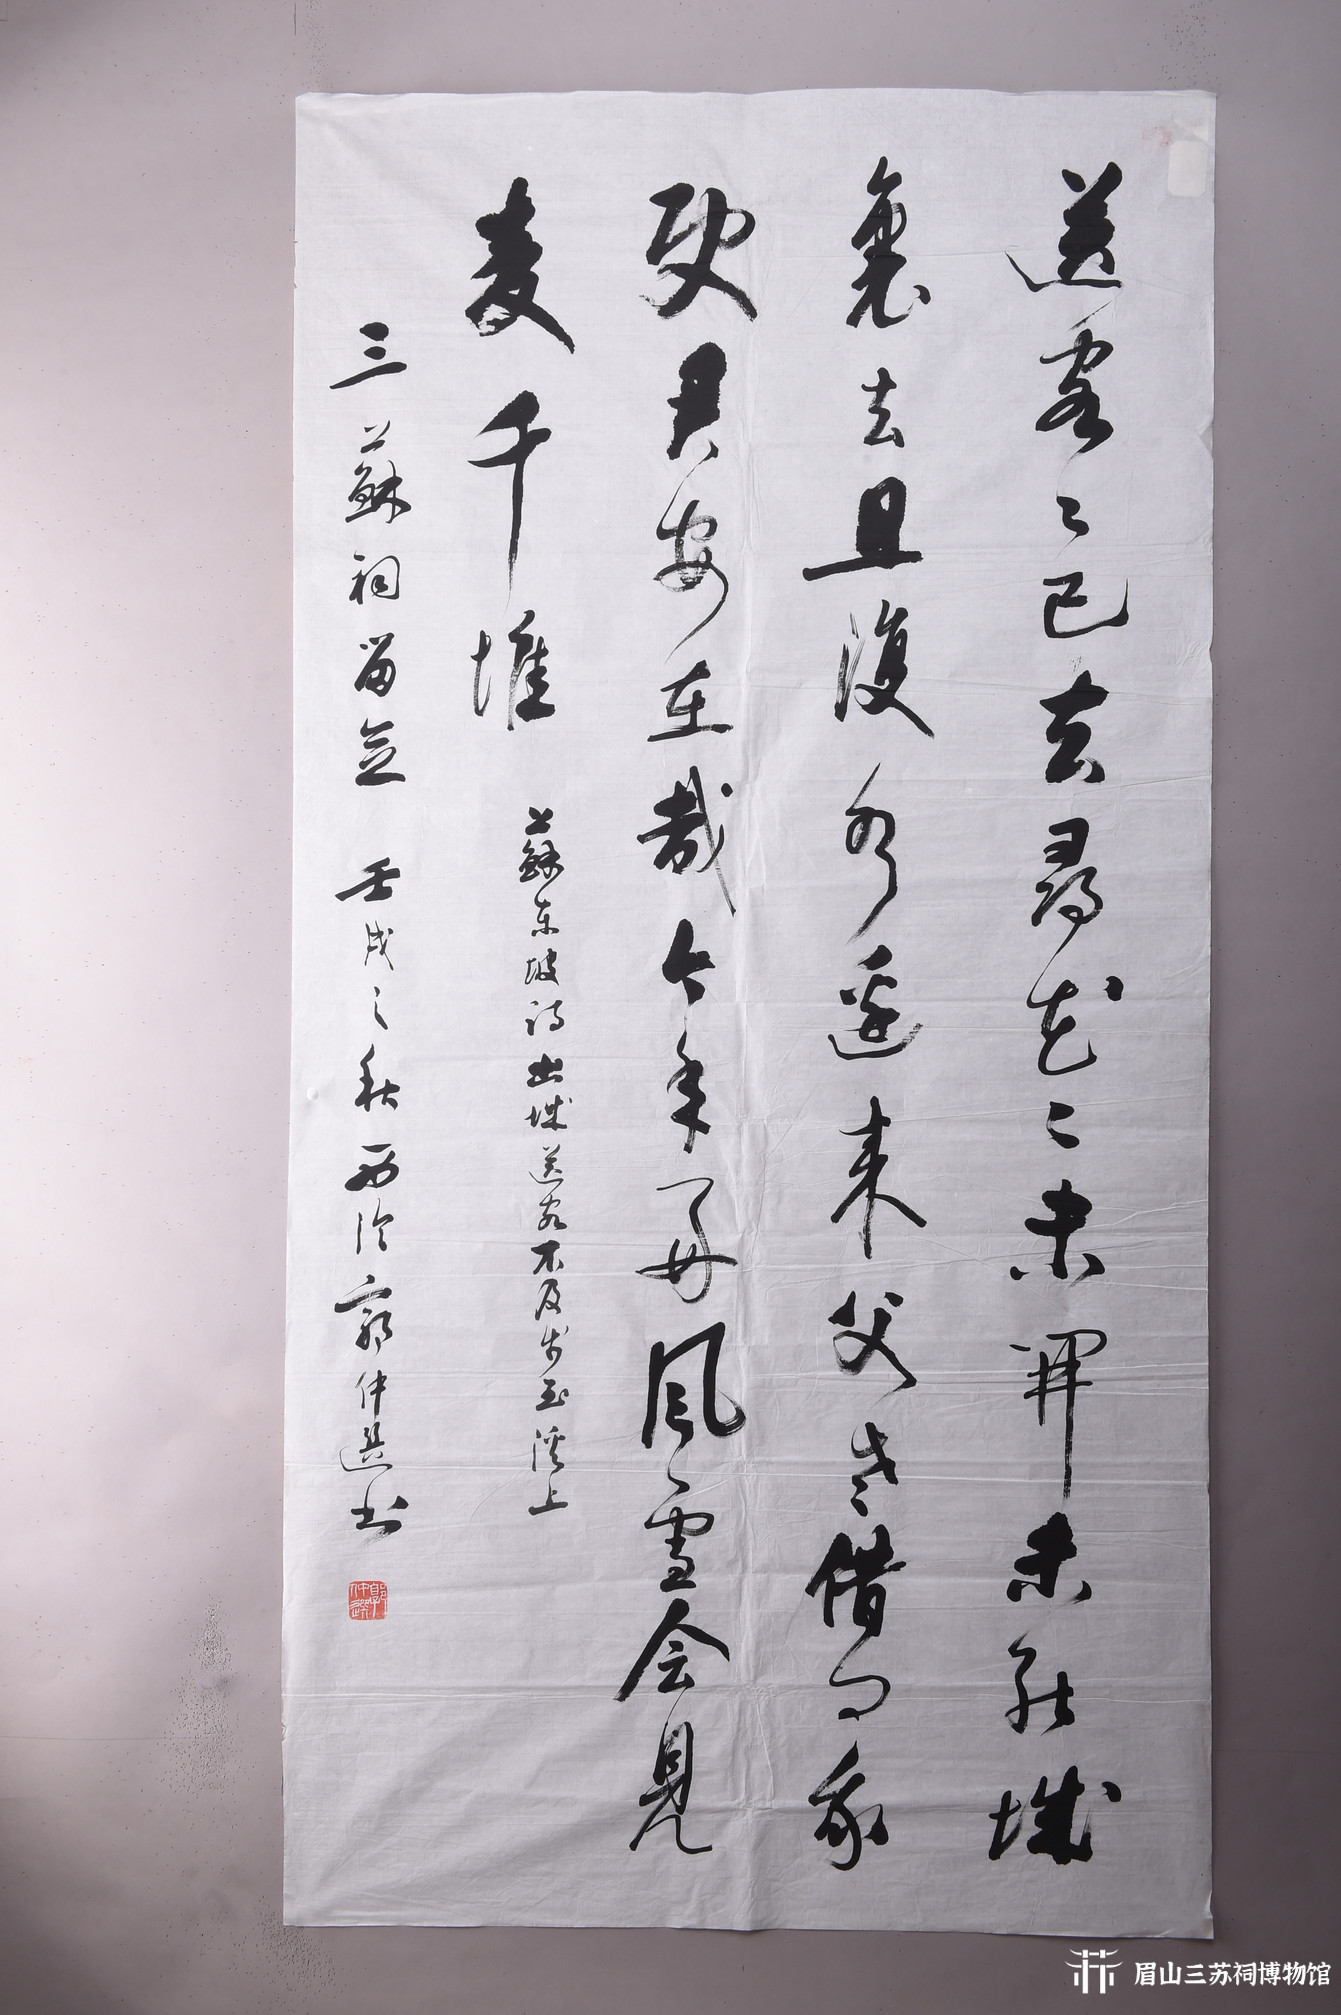 送客々已去尋花々未開未能城
裏去且復水邊來父老借问我
使君安在哉今年好風雪会見
麦千堆
蘇东坡诗出城送客不及步至溪上
三蘇祠留念 壬戌之秋西泠郭仲選书
郭仲選
眉山三苏祠博物馆